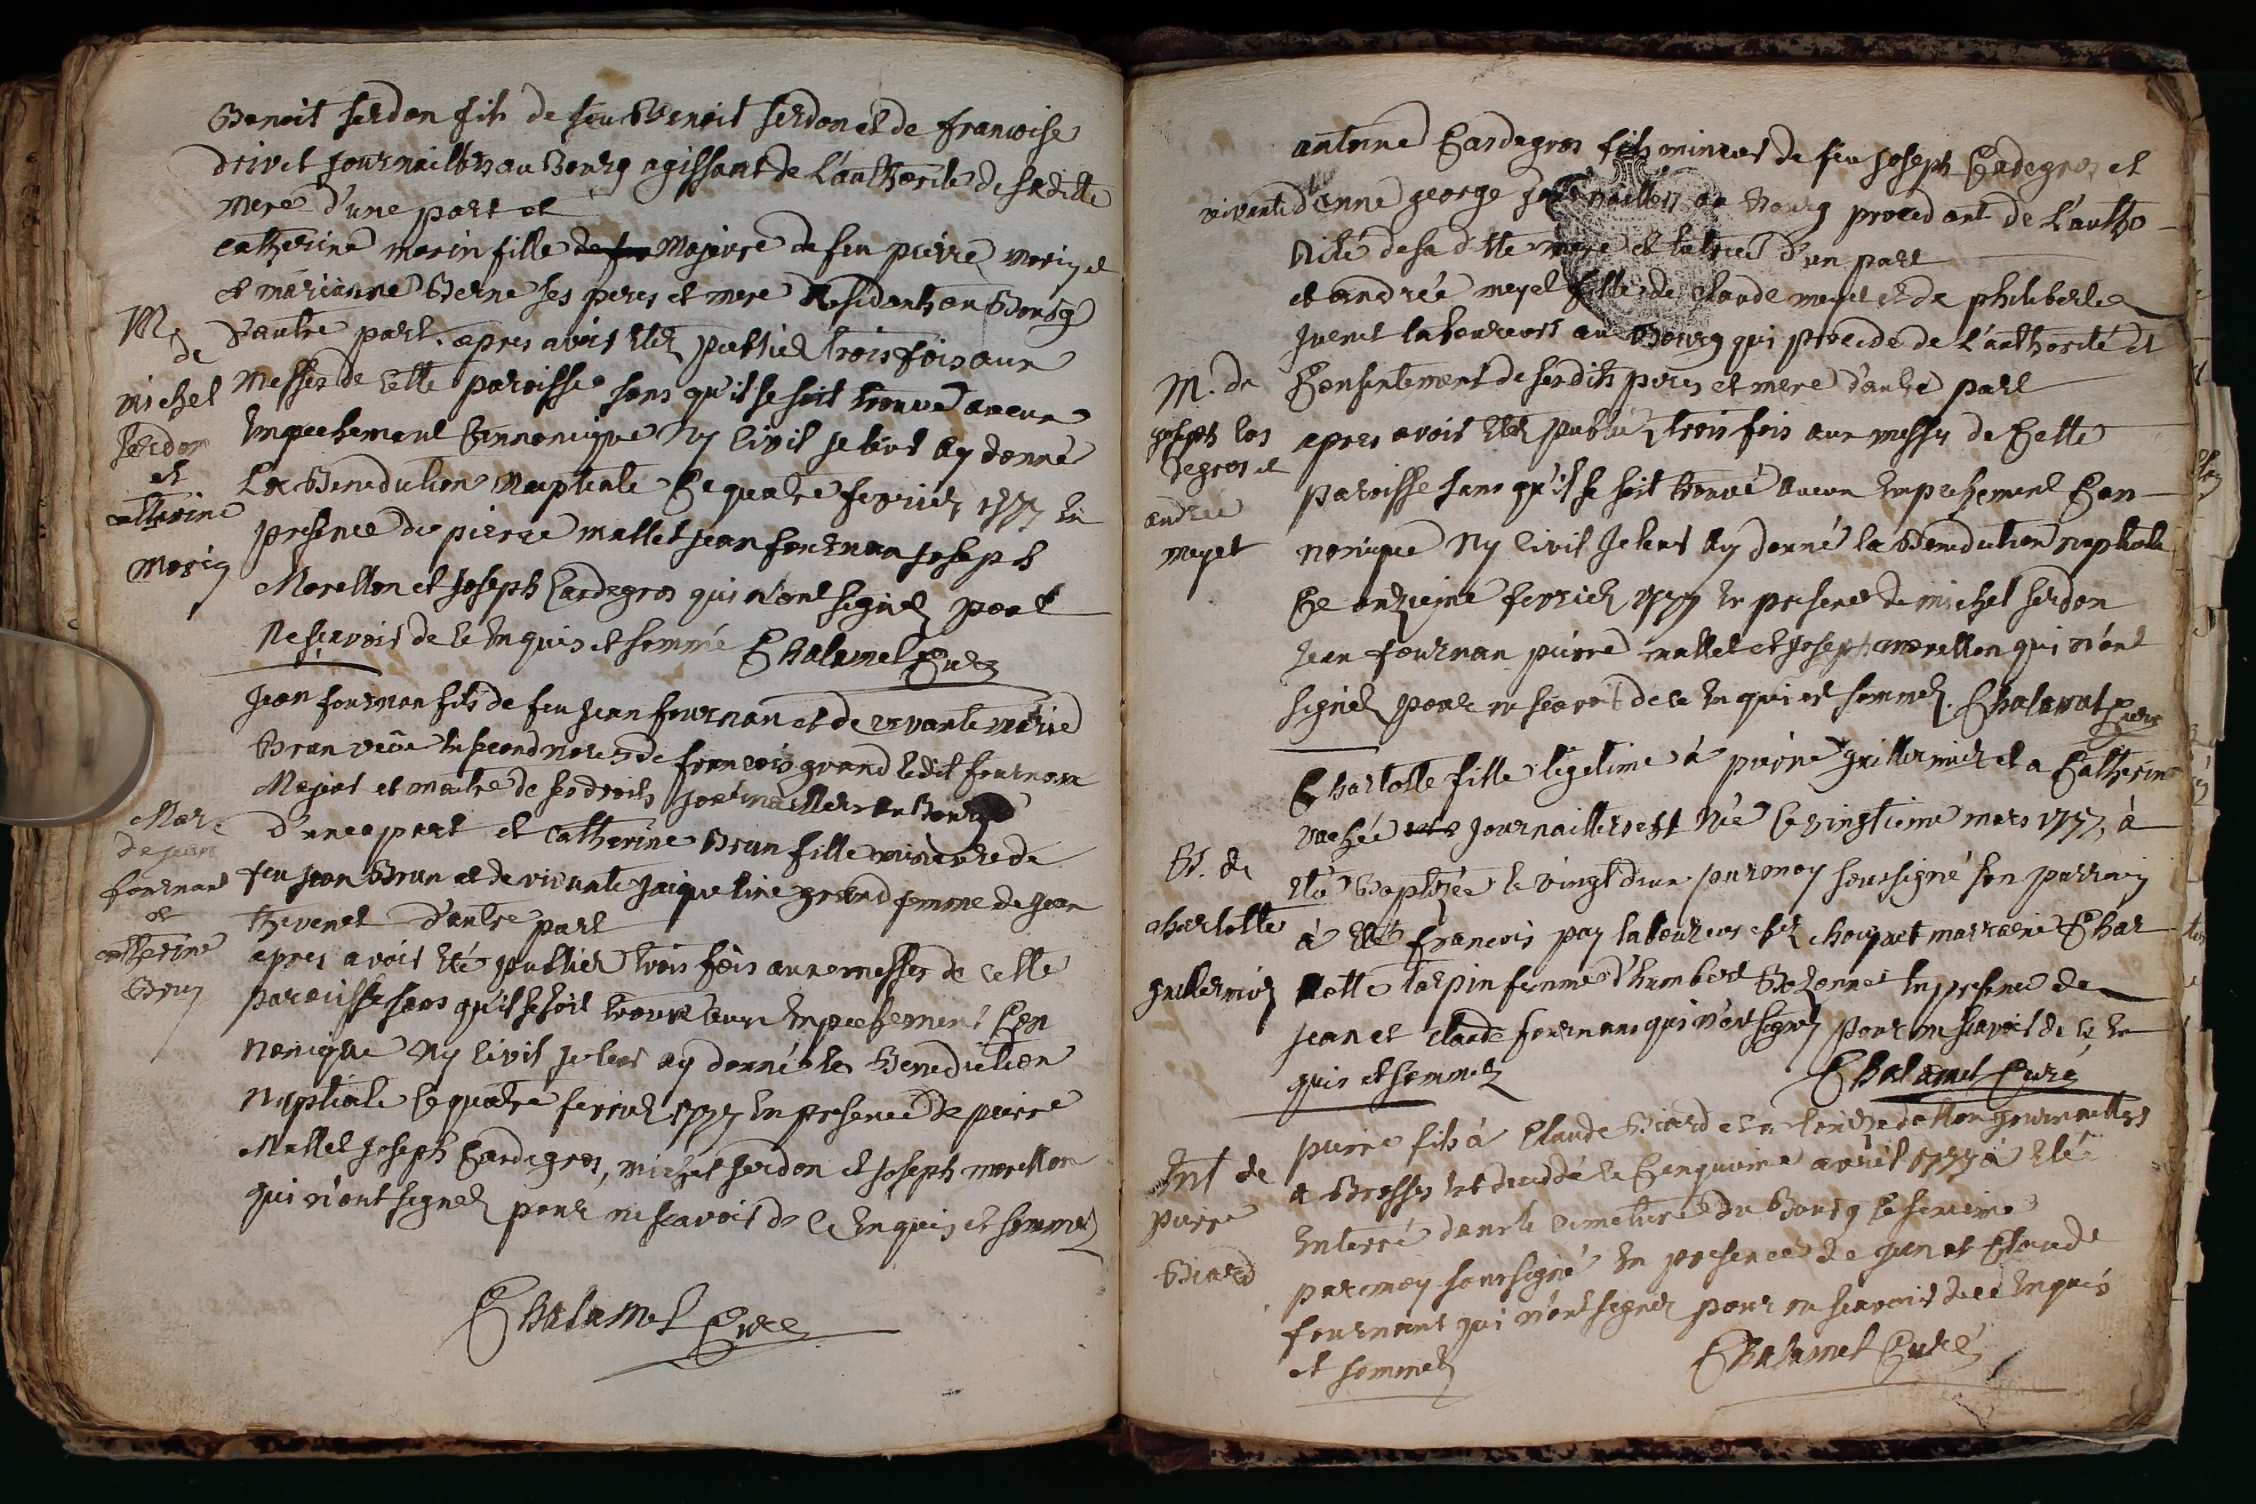 Benoit serdon fils de feu Benoit serdon et de francoise
drivet journaillers au Bourg agissant de L'authorité de sa ditte
mere d'une part et
catherine morin fille de feu Majeure de feu pierre morin et
et marianne Berne ses peres et mere Residants au Bourg
d'autre part. apres avoir eté publiez trois fois aux
Messes de cette paroisse sans qu'il se soit trouvé aucun
Empechement Cannonique Ny Civil je leur ay donné
La Benediction Nuptiale Ce quatre fevrier 1757 en
presence de pierre mallet jean fournan joseph
Morellon et joseph Cardegros qui n'ont signez pour
Ne scavoir de ce Enquis et sommé Chalamel Curé
M.
de
michel
serdon
et
catterine
morin
jean fournan fils de feu jean fournan et de vivante marie
Brun veûve en second noces de francois grand ledit fournan
Majeur et maitre de ses droits journaillers au Bourg
d'une part et catherine Brun fille mineure de
feu jean Brun et de vivante jaqueline grand femme de jean
thevenet d'autre part
apres avoir eté publiez trois fois aux messes de cette
paroisse sans qu'il se soit trouvé aucun Empechement Can
nonique Ny Civil je leur ay donné la Benediction
Nuptiale Ce quatre fevrier 1757 En presence de pierre
Mallet joseph Cardegros, michel serdon et joseph morellon
qui n'ont signez pour ne scavoir de ce Enquis et sommez
Mar.
de jean
fournan
et
catherine
Brun
Chalamel Curé
antoine Cardegros fils mineur de feu joseph Cardegros et
vivante d'anne george journaillers au Bourg procedant de L'autho
rité de sa ditte mere et tutrice d'un part
et andrée meyet fille de claude meyet et de philiberte
juenet laboureurs au Bourg qui procede de L'authorité et
Consentement de ses dits peres et mere d'autre part
apres avoir eté publiez trois fois aux messes de Cette
paroisse sans qu'il se soit trouvé aucun Empechement Can
nonique Ny Civil je leur ay donné la Benediction nuptiale
Ce onzieme fevrier 1757 en presence de michel serdon
jean fournan pierre mallet et joseph morellon qui n'ont
signez pour ne scavoir de ce Enquis et sommez. Chalamel Curé
M. de
joseph Car
degros et
andrée
meyet
Charlotte fille legitime à pierre guillermier et a Catherine
vachée journaillers est Née Ce vingtieme mars 1757, à
eté Baptisée le vingt d'eux par moy soussigné son parrain
à eté francois pay laboureur chez choupet marraine Char
lotte tarpin femme d'humbert Bozonnet En presence de
jean et claude fournans qui n'ont signez pour ne scavoir de ce En
quis et sommez Chalamel Curé
B. de
charlotte
guillermier
pierre fils à Claude Biard et a journaillers
a Bresses est decedé le Cinquieme avril 1757 à eté
Enterré dans le cimetiere du Bourg le sixieme
par moy soussigné En presence de jean et Claude
fournans qui n'ont signez pour ne scavoir de ce Enquis
et sommez Chalamel Curé
Ent de
pierre
Biard